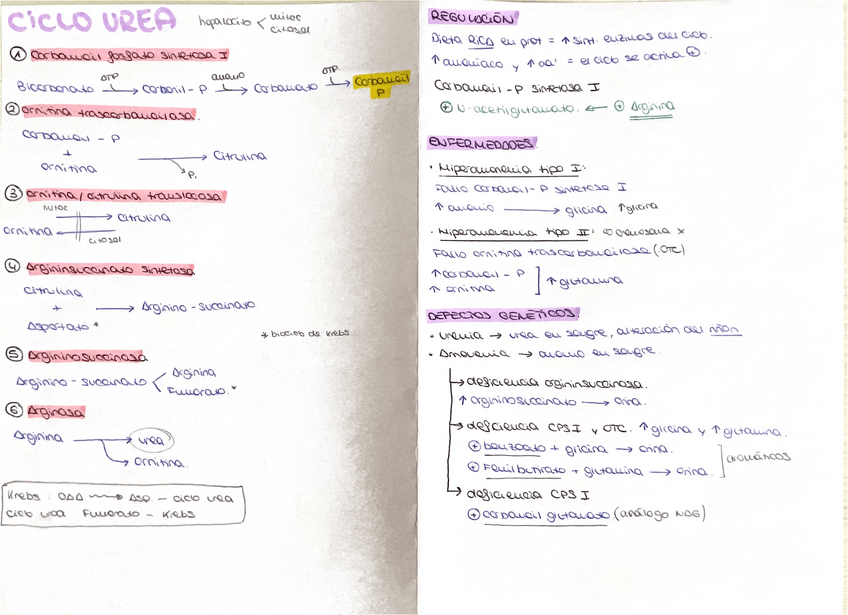 CICLO UREA
hepatocito < mitoc
citosol
① Carbamoil fosfato sintetasa I
Bicarbonato ATP → Carbonil-P amonio → Carbamato ATP → Carbamoil P
② Ornitina trascarbamoilasa.
Carbamoil - P
+
Ornitina → Citrulina
Pi
③ Ornitina/citrulina translocasa
mitoc → citrulina
ornitina ← citosol
④ Argininsuccinato sintetasa
Citrulina
+ → Arginino-succinato
Aspartato *
* biciclo de Krebs
⑤ Argininosuccinasa
Arginino-succinato < Arginina
Fumarato.*
⑥ Arginasa
Arginina → urea
→ Ornitina.
Krebs: OAA → Asp - ciclo urea
ciclo urea Fumarato - Krebs
REGULACIÓN
Dieta RICA en prot = ↑ sint. enzimas del ciclo.
↑ amoniaco y ↑ aa' = el ciclo se activa ⊕.
Carbamoil-P sintetasa I
⊕ N-acetilglutamato. ← ⊕ Arginina
ENFERMEDADES.
· Hiperamonemia tipo I:
Fallo carbamoil-P sintetasa I
↑ amonio → glicina ↑glicina
· Hiperamonemia tipo II: cromosoma x
Fallo ornitina trascarbamoilasa (OTC)
↑ carbamoil-P
↑ ornitina ] ↑ glutamina
DEFECTOS GENÉTICOS.
· uremia → urea en sangre, alteración del riñón
· Amonemia → amonio en sangre.
→ deficiencia argininsuccinasa.
↑ argininosuccinato → orina.
→ deficiencia CPS I y OTC. ↑ glicina y ↑ glutamina.
⊕ benzoato + glicina → orina.
⊕ Fenilbutirato + glutamina → orina. ] aromáticos
→ deficiencia CPS I
⊕ carbamoil glutamato (análogo NAG)